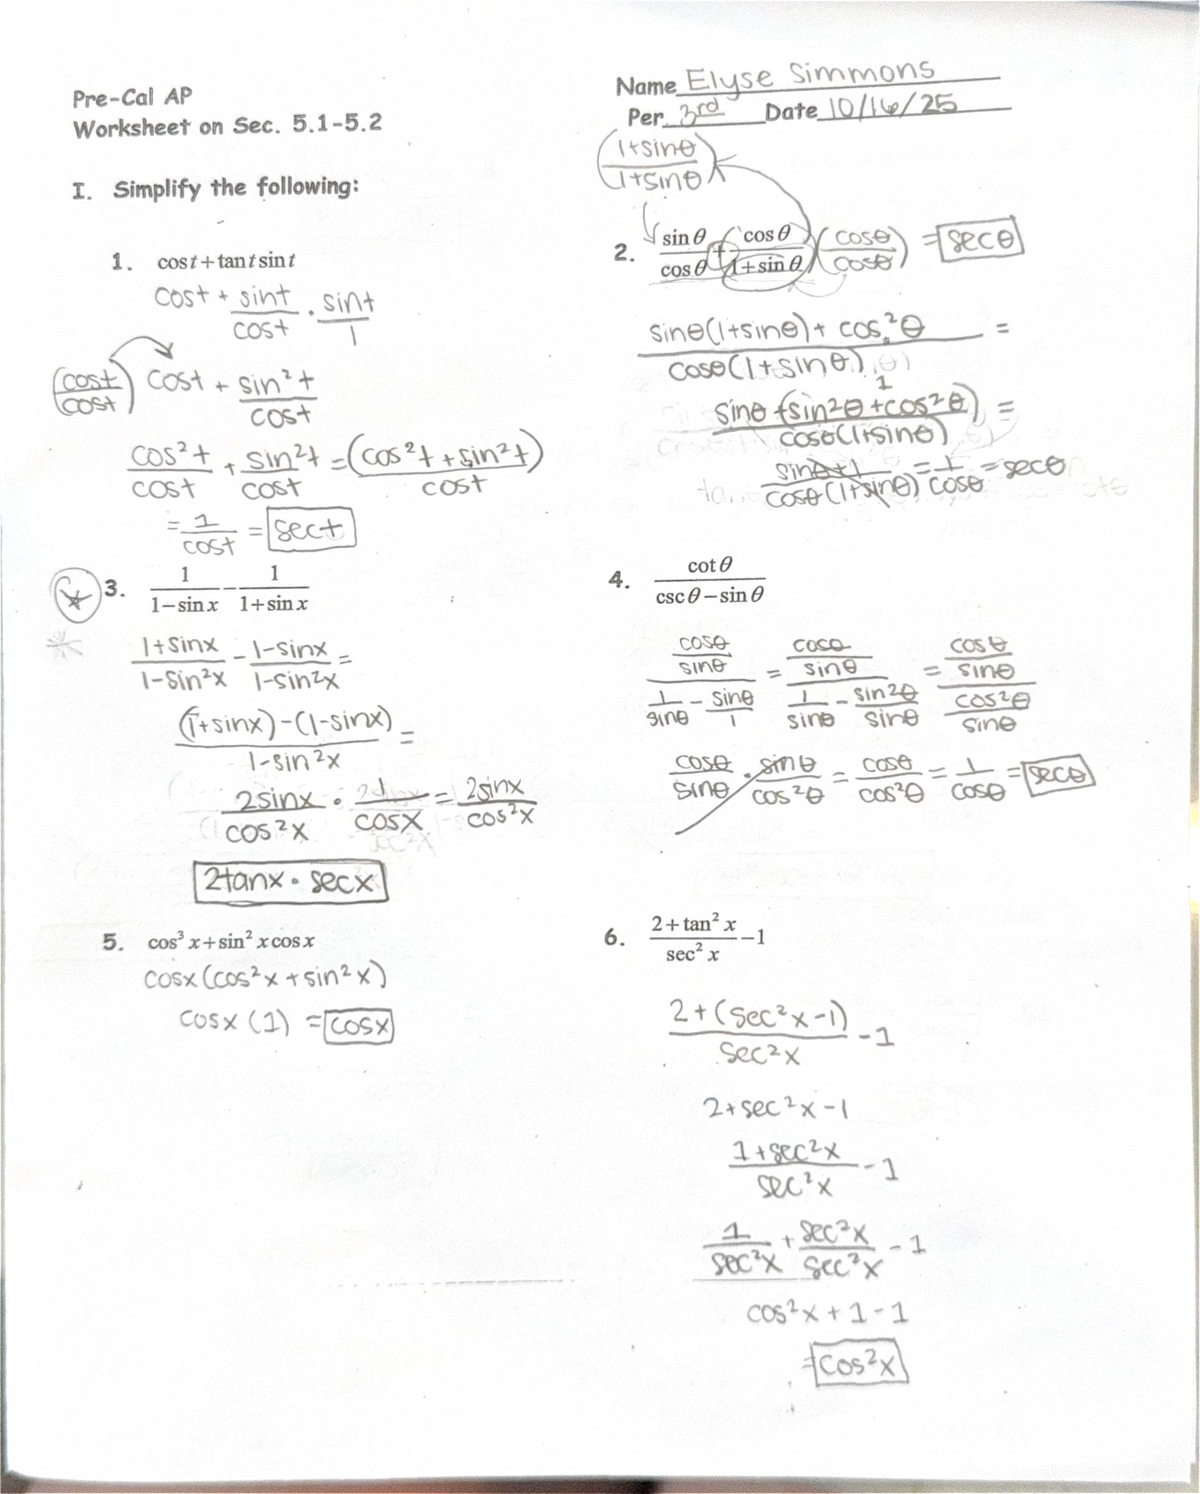 Pre-Cal AP
Worksheet on Sec. 5.1-5.2
Name Elyse Simmons
Per. 3rd Date 10/16/25
I. Simplify the following:
1. cos t + tan t sin t
cost + sint/cost · sint/1
(cost/cost) cost + sin²t/cost
cos²t/cost + sin²t/cost = (cos²t + sin²t)/cost
= 1/cost = sect
(1+sinθ/1+sinθ)
2. sin θ/cos θ + (cos θ/1+sin θ)(cosθ/cosθ) = secθ
sinθ(1+sinθ) + cos²θ/cosθ(1+sinθ) =
sinθ + (sin²θ + cos²θ) 1/cosθ(1+sinθ) =
sinθ+1/cosθ(1+sinθ) = 1/cosθ = secθ
3. 1/1−sin x − 1/1+sin x
1+sinx/1-sin²x - 1-sinx/1-sin²x =
(1+sinx)-(1-sinx)/1-sin²x =
2sinx/cos²x · 1/cosx = 2sinx/cos²x
2tanx · secx
4. cot θ/csc θ − sin θ
cosθ/sinθ / 1/sinθ - sinθ/1 = cosθ/sinθ / 1/sinθ - sin²θ/sinθ = cosθ/sinθ / cos²θ/sinθ
cosθ/sinθ · sinθ/cos²θ = cosθ/cos²θ = 1/cosθ = secθ
5. cos³ x + sin² x cos x
cosx(cos²x + sin²x)
cosx (1) = cosx
6. 2 + tan² x/sec² x − 1
2+(sec²x-1)/sec²x - 1
2+sec²x-1
1+sec²x/sec²x - 1
1/sec²x + sec²x/sec²x - 1
cos²x + 1 - 1
= cos²x